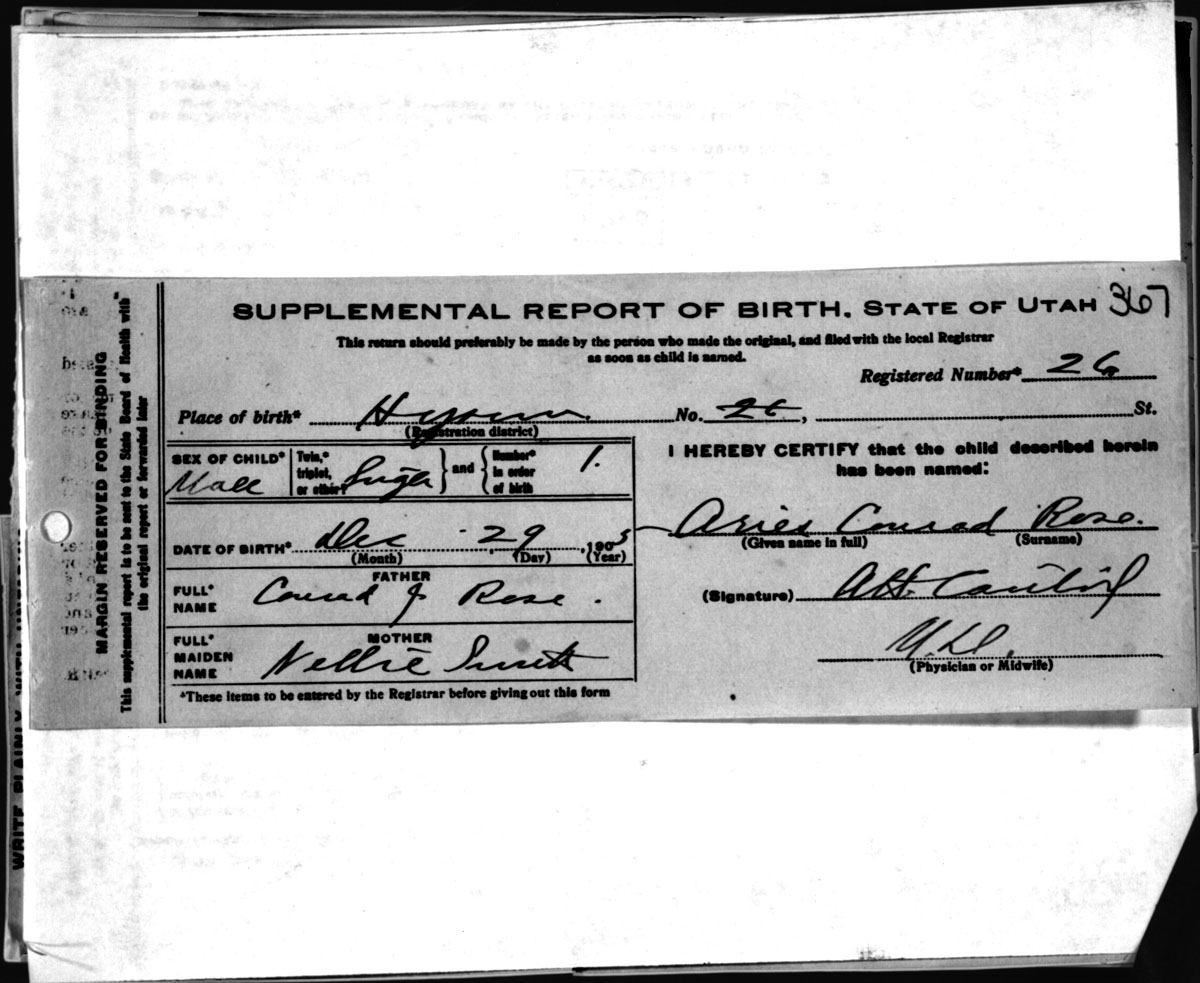 SUPPLEMENTAL REPORT OF BIRTH. STATE OF UTAH 367
This return should preferably be made by the person who made the original, and filed with the local Registrar
as soon as child is named.
Registered Number* 26
Place of birth* Hyrum. No. 26, St.
(Registration district)
SEX OF CHILD* Male Twin,* triplet, or other? Single and Number* in order of birth 1.
DATE OF BIRTH* Dec 29, 1905
(Month) (Day) (Year)
FATHER
FULL* NAME Conrad J Rose.
MOTHER
FULL* MAIDEN NAME Nellie Smith
*These items to be entered by the Registrar before giving out this form
I HEREBY CERTIFY that the child described herein
has been named:
Aries Conrad Rose.
(Given name in full) (Surname)
(Signature)
M.D.
(Physician or Midwife)
MARGIN RESERVED FOR BINDING
This supplemental report is to be sent to the State Board of Health with"
the original report or forwarded later
WRITE PLAINLY WITH